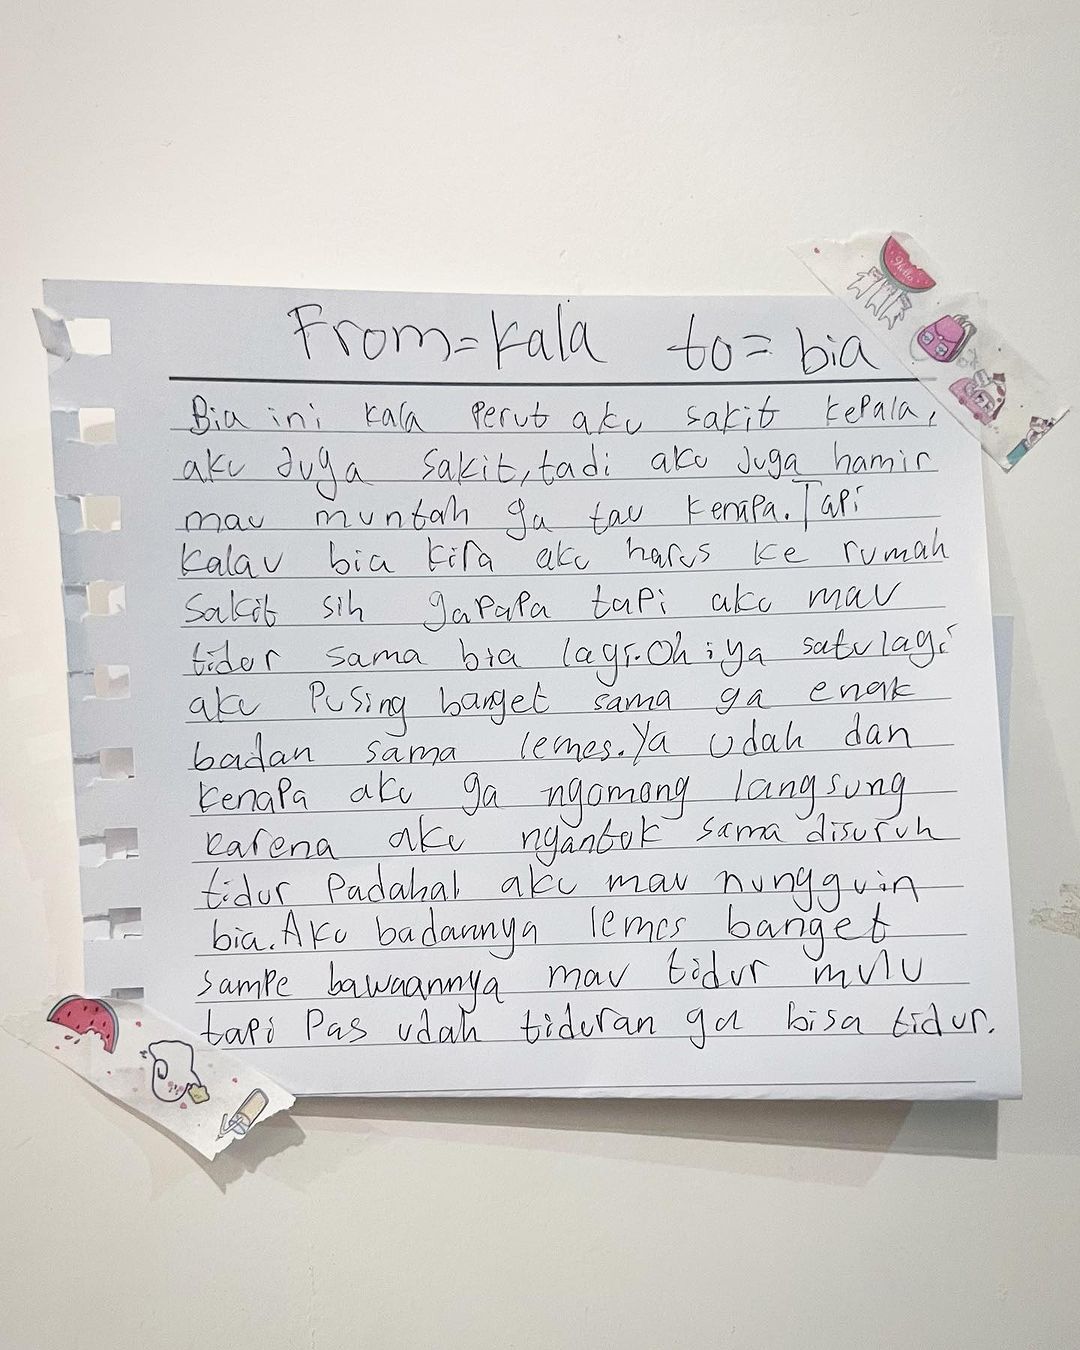 From=Kala to=bia
Bia ini kala perut aku sakit kepala,
aku Juga sakit, tadi aku Juga hamir
mau muntah ga tau kenapa. Tapi
kalau bia kira aku harus ke rumah
sakit sih gapapa tapi aku mau
tidur sama bia lagi. Oh iya satu lagi
aku pusing banget sama ga enak
badan sama lemes. Ya udah dan
kenapa aku ga ngomong langsung
karena aku ngantuk sama disuruh
tidur padahal aku mau nungguin
bia. Aku badannya lemes banget
sampe bawaannya mau tidur mulu
tapi pas udah tiduran ga bisa tidur.
Hello